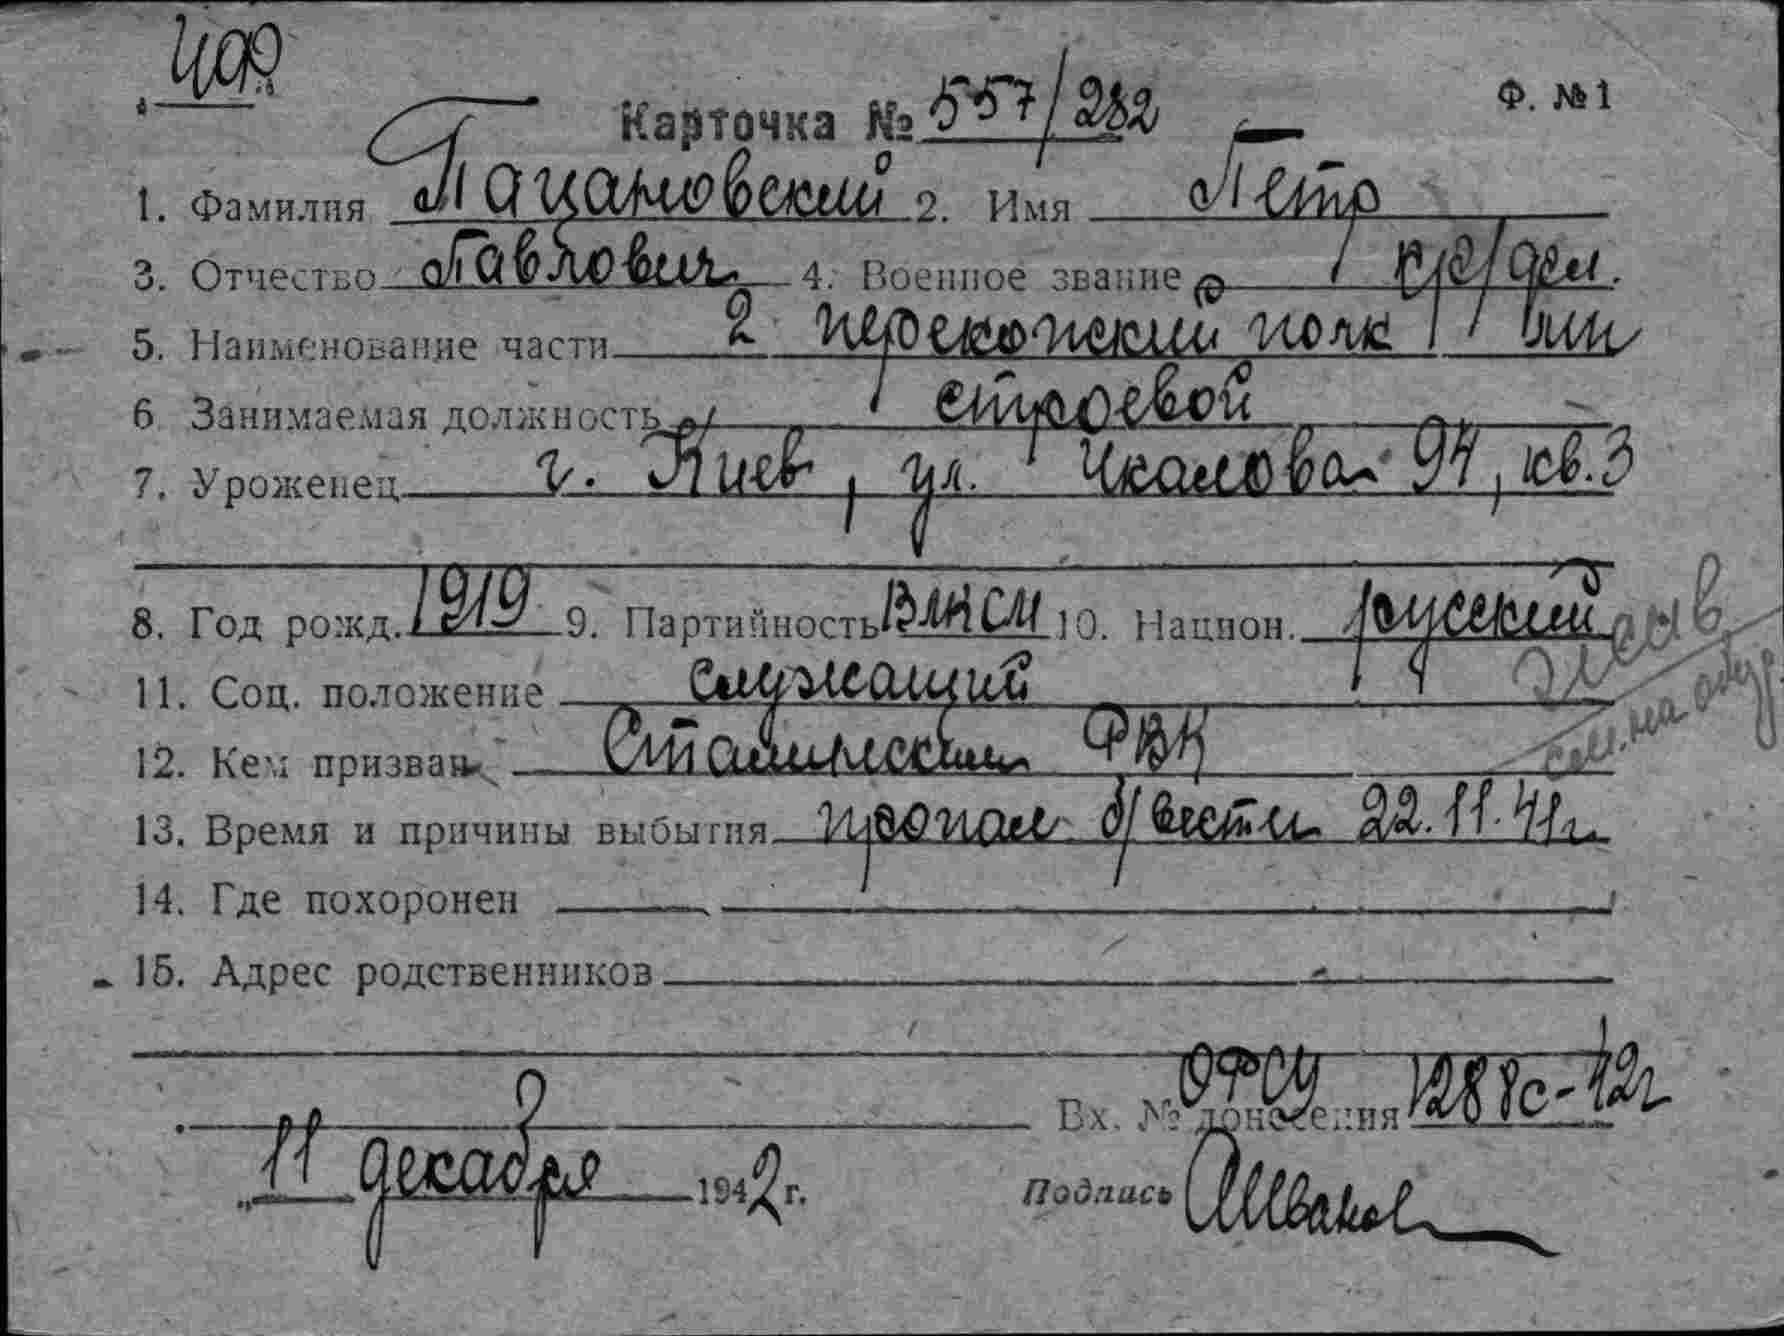 Ф. №1
Карточка № 557/282
1. Фамилия Пацановский 2. Имя Петр
3. Отчество Павлович 4. Военное звание кр/дец.
5. Наименование части 2 перекопский полк
6 Занимаемая должность строевой
7. Уроженец г. Киев, ул. Чкалова 94, кв. 3
8. Год рожд. 1919 9. Партийность ВЛКСМ 10. Национ. русский
11. Соц. положение служащий
12. Кем призван Сталинским РВК
13. Время и причины выбытия пропал б/вести 22.11.41г.
14. Где похоронен
15. Адрес родственников
Вх. № донесения 1288с-42г
„11 декабря 1942г.
Подпись